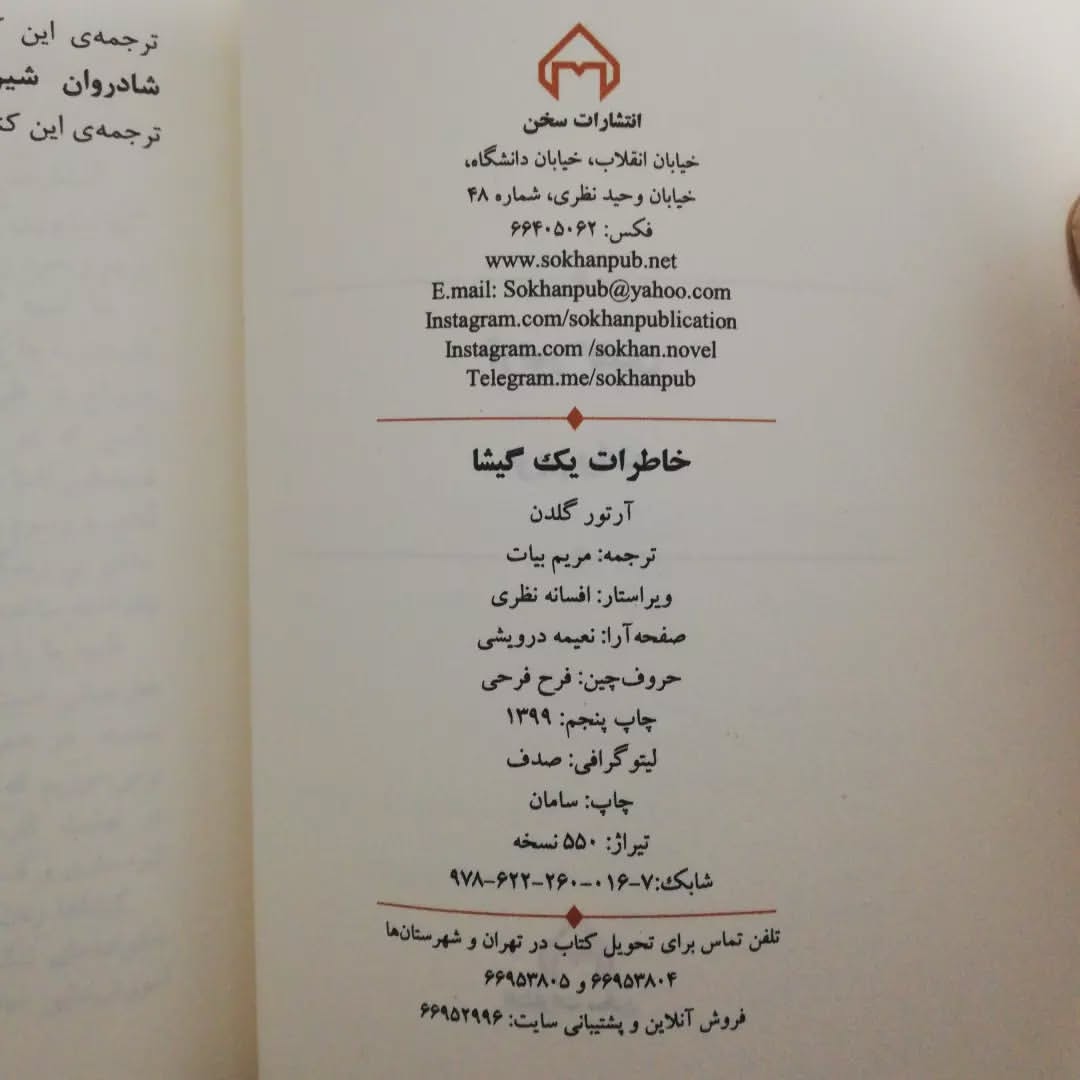 ترجمه‌ی این
شادروان
ترجمه‌ی این
انتشارات سخن
خیابان انقلاب، خیابان دانشگاه،
خیابان وحید نظری، شماره ۴۸
فکس: ۶۶۴۰۵۰۶۲
www.sokhanpub.net
E.mail: Sokhanpub@yahoo.com
Instagram.com/sokhanpublication
Instagram.com /sokhan.novel
Telegram.me/sokhanpub
خاطرات یک گیشا
آرتور گلدن
ترجمه: مریم بیات
ویراستار: افسانه نظری
صفحه‌آرا: نعیمه درویشی
حروف‌چین: فرح فرحی
چاپ پنجم: ۱۳۹۹
لیتوگرافی: صدف
چاپ: سامان
تیراژ: ۵۵۰ نسخه
شابک:۷-۰۱۶-۲۶۰-۶۲۲-۹۷۸
تلفن تماس برای تحویل کتاب در تهران و شهرستان‌ها
۶۶۹۵۳۸۰۴ و ۶۶۹۵۳۸۰۵
فروش آنلاین و پشتیبانی سایت: ۶۶۹۵۲۹۹۶